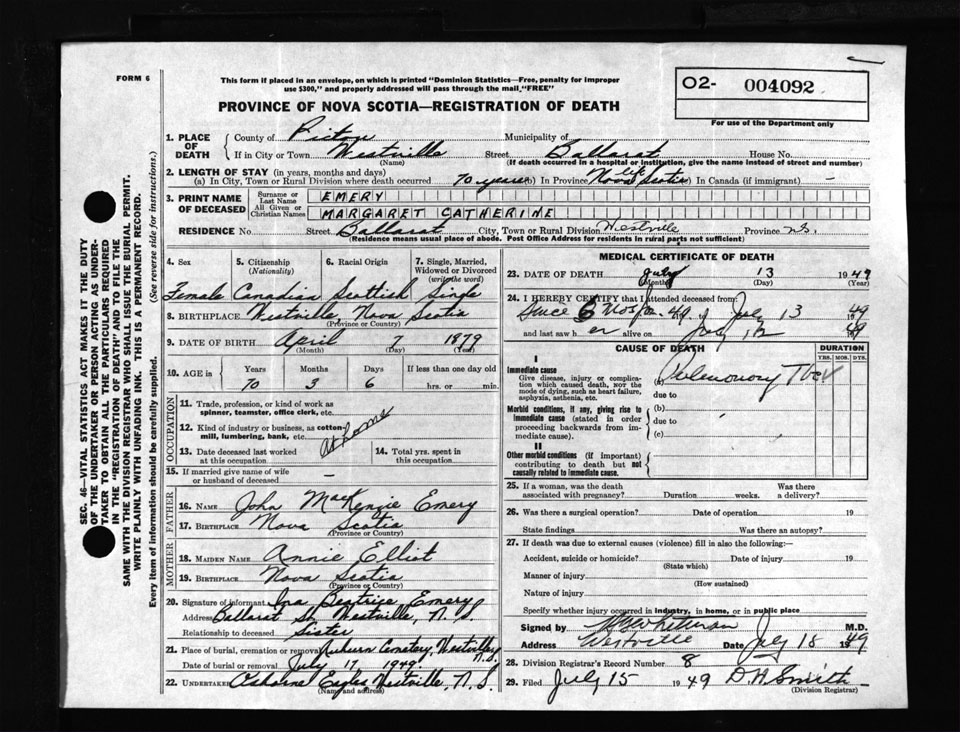 FORM 6
This form if placed in an envelope, on which is printed "Dominion Statistics—Free, penalty for improper
use $300," and properly addressed will pass through the mail, "FREE"
PROVINCE OF NOVA SCOTIA—REGISTRATION OF DEATH
O2- 004092
For use of the Department only
SEC. 46—VITAL STATISTICS ACT MAKES IT THE DUTY
OF THE UNDERTAKER OR PERSON ACTING AS UNDER-
TAKER TO OBTAIN ALL THE PARTICULARS REQUIRED
IN THE "REGISTRATION OF DEATH" AND TO FILE THE
SAME WITH THE DIVISION REGISTRAR WHO SHALL ISSUE THE BURIAL PERMIT.
WRITE PLAINLY WITH UNFADING INK. THIS IS A PERMANENT RECORD.
Every item of information should be carefully supplied. (See reverse side for instructions.)
1. PLACE OF DEATH
County of Pictou Municipality of
If in City or Town Westville Street Ballarat House No.
(Name) (If death occurred in a hospital or institution, give the name instead of street and number)
2. LENGTH OF STAY (in years, months and days)
(a) In City, Town or Rural Division where death occurred 70 years (b) In Province life Nova Scotia In Canada (if immigrant) –
3. PRINT NAME OF DECEASED
Surname or Last Name EMERY
All Given or Christian Names MARGARET CATHERINE
RESIDENCE No. Street Ballarat City, Town or Rural Division Westville Province N.S.
(Residence means usual place of abode. Post Office Address for residents in rural parts not sufficient)
4. Sex 5. Citizenship (Nationality) 6. Racial Origin 7. Single, Married, Widowed or Divorced (write the word)
Female Canadian Scottish Single
8. BIRTHPLACE Westville, Nova Scotia
(Province or Country)
9. DATE OF BIRTH April 7 1879
(Month) (Day) (Year)
10. AGE in Years Months Days If less than one day old
70 3 6 hrs. or min.
OCCUPATION
11. Trade, profession, or kind of work as
spinner, teamster, office clerk, etc.
12. Kind of industry or business, as cotton-
mill, lumbering, bank, etc.
At home
13. Date deceased last worked
at this occupation
14. Total yrs. spent in
this occupation
15. If married give name of wife
or husband of deceased –
FATHER
16. NAME John MacKenzie Emery
17. BIRTHPLACE Nova Scotia
MOTHER
18. MAIDEN NAME Annie Elliot
19. BIRTHPLACE Nova Scotia
(Province or Country)
20. Signature of informant Ina Beatrice Emery
Address Ballarat St. Westville, N.S.
Relationship to deceased Sister
21. Place of burial, cremation or removal Auburn Cemetery, Westville N.S.
Date of burial or removal July 17 1949
22. UNDERTAKER Osborne Eagles Westville, N.S.
(Name and address)
MEDICAL CERTIFICATE OF DEATH
23. DATE OF DEATH July 13 1949
(Month) (Day) (Year)
24. I HEREBY CERTIFY that I attended deceased from:
Since 6 mos 49 July 13 1949
and last saw h er alive on July 12 1949
CAUSE OF DEATH DURATION
YRS. MOS. DYS.
I
Immediate cause
Give disease, injury or complica-
tion which caused death, not the
mode of dying, such as heart failure,
asphyxia, asthenia, etc.
(a) Pulmonary
due to
Morbid conditions, if any, giving rise to
immediate cause (stated in order
proceeding backwards from im-
mediate cause).
(b)
due to
(c)
II
Other morbid conditions (if important)
contributing to death but not
causally related to immediate cause.
25. If a woman, was the death
associated with pregnancy? Duration weeks. Was there
a delivery?
26. Was there a surgical operation? Date of operation 19
State findings Was there an autopsy?
27. If death was due to external causes (violence) fill in also the following:—
Accident, suicide or homicide? Date of injury 19
(State which)
Manner of injury
(How sustained)
Nature of injury
Specify whether injury occurred in industry, in home, or in public place
Signed by Whiteman M.D.
Address Westville Date July 18 1949
28. Division Registrar's Record Number 8
29. Filed July 15 1949 D. H. Smith
(Division Registrar)